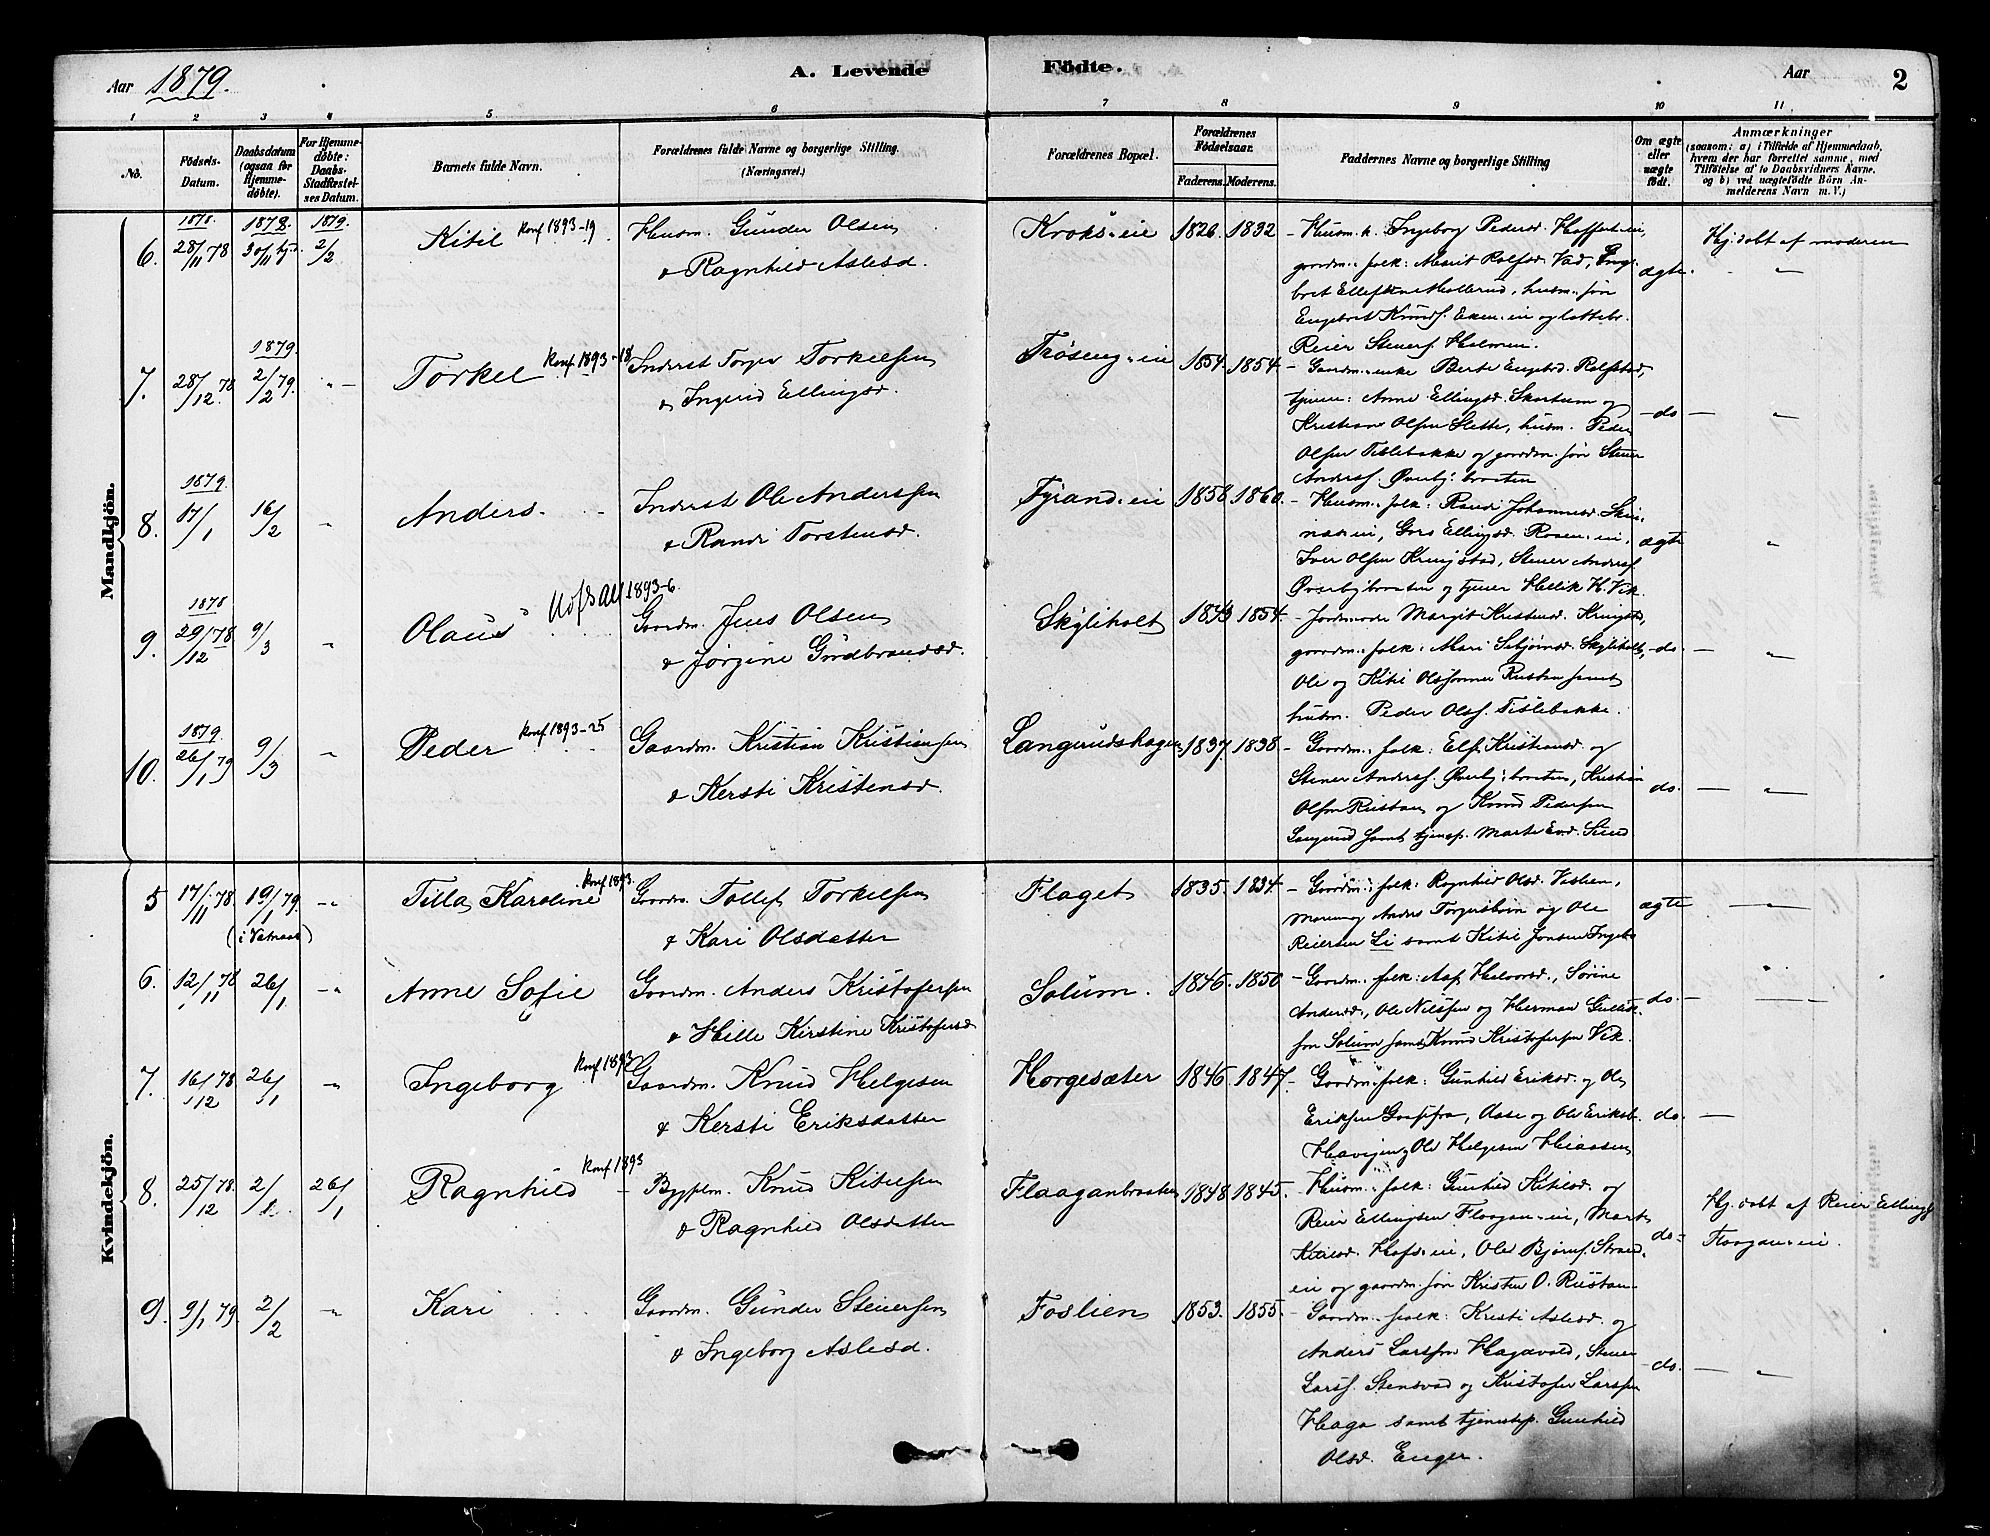 Aar 1879.
A. Levende Födte.
Aar
2
1 2 3 4 5 6 7 8 9 10 11
No.
Födsels-Datum.
Daabsdatum (ogsaa for Hjemmedöbte).
For Hjemmedöbte: Daabs-Stadfæstelses Datum.
Barnets fulde Navn.
Forældrenes fulde Navne og borgerlige Stilling.
(Næringsvei.)
Forældrenes Bopæl.
Forældrenes Födselsaar.
Faderens. Moderens.
Faddernes Navne og borgerlige Stilling
Om ægte eller uægte födt.
Anmærkninger
(saasom: a) i Tilfælde af Hjemmedaab, hvem der har forrettet samme, med Tilföielse af to Daabsvidners Navne, og b) ved uægtefödte Börn Anmelderens Navn m. V.)
Mandkjön.
6. 1878. 28/11 78 1878. 30/11 hj. 1879. 2/2 Kitil Konf 1893-19 Husm. Gunder Olsen
& Ragnhild Aslesd.
Kroks-eie 1826 1832
- Husm. k. Ingeborg Pedersd. Hoffert-ei,
gaardm.folk: Marit Rolfsd. Vad, Eng-
bret Ellefsen Mollerud, husm. søn
Engebret Knuds. Eken-ei og lottebr.
Reier Steners. Holmen.
ægte.
Hj. døbt af moderen
7. 28/12 78 1879. 2/2 79. - Torkel Konf 1893-18 Inderst Torger Torkelsen
& Ingrid Ellingsd.
Trøseng-eie 1854. 1854
- Gaardm. enke Berte Engebd. Rolfstad,
tjener: Anne Ellingsd. Skartum og
Kristian Olsen Slette, husm. Peder
Olsen Tislebakke og gaardm. søn Stener
Anders. Øverby-braaten
do
8. 1879. 17/1 16/2 " Anders. Inderst Ole Anderssen
& Randi Torstensd.
Tyrand-eie 1858 1860.
- Husm. folk: Randi Johannesd. Skri-
næs-ei, Gros Ellingsd. Rosen-ei,
Iver Olsen Kringstad, Stener Anders.
Øverbybraaten og tjener Hellik H. Vik.
ægte
9. 1878 29/12 78 9/3 " Olaus 1893-6 Gaardm. Jens Olsen
& Jørgine Gudbrandsd.
Skyliholt 1843 1854.
- Jordmoder Margit Kristensd. Kringstd,
gaardm. folk: Mari Sebjørnsd. Skyliholt,
Ole og Kitil Olssønner Rustan samt
husm. Peder Ols. Tislebakke.
do.
10. 1879. 26/1 79 9/3 " Peder Konf 1893-25 Gaardm. Kristian Kristiansen
& Kersti Kristensd.
Langerudshagen 1837. 1838.
- Gaardm. folk: Eli Kristiansd. og
Stener Anders. Øverby-braaten, Kristian
Olsen Rustan og Knud Pedersen
Langerud samt tjenesp. Marte Evd. Sterud
do.
Kvindekjön.
5 17/11 78. 19/1 79. (i Vatnaas) " Tilla Karoline Konf 1893. Gaardm. Tollef Torkelsen
& Kari Olsdatter
Flaget 1835. 1834.
- Gaardm. folk: Ragnhild Olsd. Vislien,
Maren og Anders Torgersbøen og Ole
Reiersen Li samt Kitil Jonsen Ingebo
ægte
6. 12/11 78 26/1 " Anne Sofie Gaardm. Anders Kristofersen
& Hille Kirstine Kristofersd.
Solum. 1846. 1850
- Gaardm. folk: Aase Halvorsd., Sørine
Andersd., Ole Nilssen og Herman Gulliks-
sen Solum samt Knud Kristofersen Vik.
do.
7. 16/12 78 26/1 " Ingeborg Konf 1893 Gaardm. Knud Helgesen
& Kersti Eriksdatter
Horgesæter 1846. 1847
- Gaardm. folk: Gunhild Eriksd. og Ole
Eriksen Graffra, Aase og Ole Eriksb.
Havigen, Ole Helgesen Heiaasen
do.
8. 25/12 78. 2/1. 26/1 Ragnhild Konf 1893 Bygslm. Knud Kitilsen
& Ragnhild Olsdatter
Flaaganbraaten 1848. 1845.
- Husm. folk: Gunhild Kitilsd. og
Reier Ellingsen Flaagan-ei, Marte
Kitilsd. Hafs-ei, Ole Bjørns. Strand-
ei og gaardm. søn Kristen O. Rustan
do-
Hj. døbt af Reier Ellings.
Flaagan-ei.
9. 9/1 79. 2/2 " Kari Gaardm. Gunder Steinersen
& Ingeborg Aslesd.
Foslien 1853. 1855.
- Gaardm. folk: Kristi Aslesd. og
Anders Larssen Hagavold, Stener
Lars. Stensvad og Kristofer Larssen
Haga samt tjenestep. Gunhild
Olsd. Enger.
do.